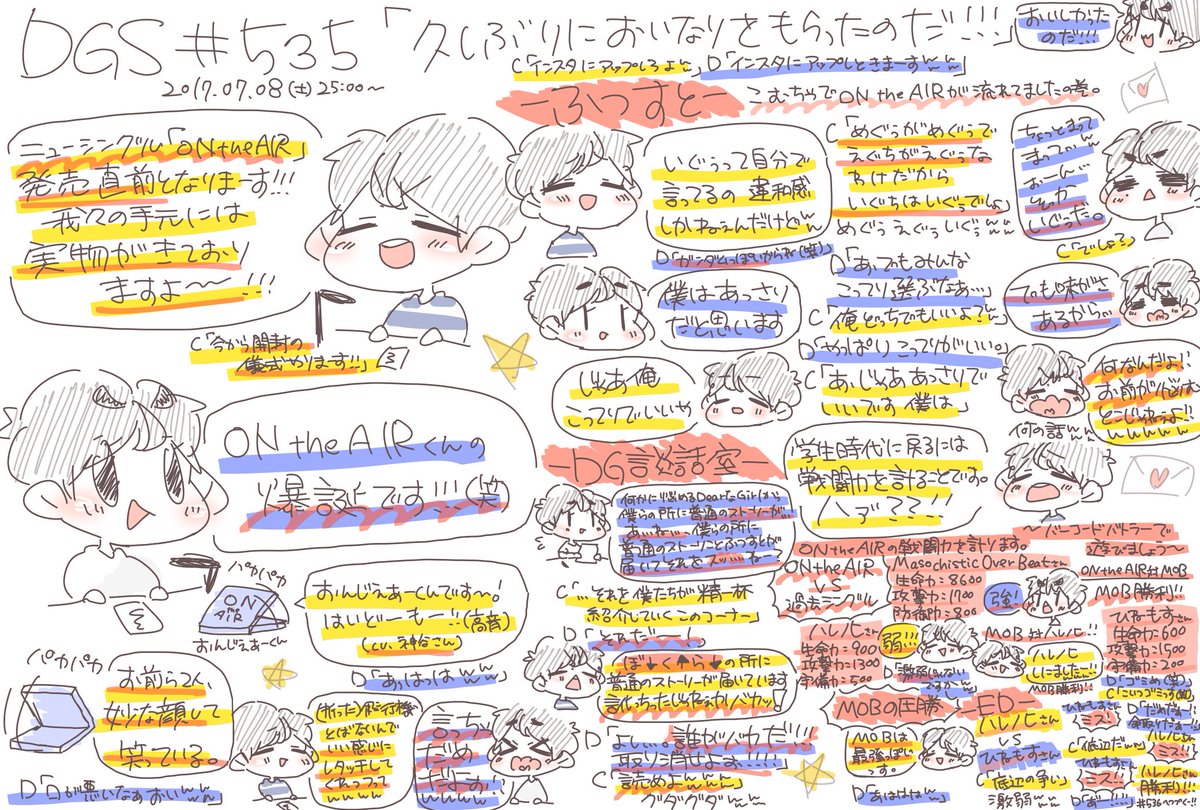 DGS #535「久しぶりにおいなりをもらったのだ!!!」
おいしかった
のだ!!!
2017.07.08(土)25:00~
C「インスタにアップしろよw」D「インスタにアップしときまーすww」
ーふつすとー
こむちゃでON the AIRが流れてましたの巻。
ニューシングル「ON the AIR」
発売直前となりまーす!!!
我々の手元には
実物がきており
ますよ〜...!!
C「今から開封の
儀式やります!!」
いぐぅって自分で
言ってるの違和感
しかねぇんだけどw
D「ガンダムっぽいからね(笑)
C「めぐぅがめぐぅで
えぐちがえぐぅな
わけだから
いぐちはいぐぅでしょ
めぐぅえぐぅいぐぅww
ちょっとまって
そっか
しぐった。
C「でしょう?
僕はあっさり
だと思います
D「あ、でもみんな
こってり選ぶなぁ…」
C「俺どっちでもいいよ?w」
でも味がさ
あるからw
じゃあ俺
こってりでいいや
D「やっぱりこってりがいい。」
C「あ、じゃああっさりで
いいです僕は」
何なんだよ!
お前が心は
どこじゃねぇよ!!
wwwww
何の話ww
ON the AIRくんの
爆誕です!!!(笑
パカパカ
ON
the
AIR
おんじえあーくん
おんじえあーくんです〜!
はいどーもー!!(高音)
(cv.神谷さん)
D「あっはっはww
パカパカ
お前ら2人
妙な顔して
笑っている。
D「目が悪いなぁおいww
(折った)紙飛行機
とばないんで
いい感じに
レタッチして
くれっつって
wwww
言っちゃ
だめ
だよぉ!!
wwww
ーDG談話室ー
何かに悩めるDear Girlから
僕らの所に普通のストーリーが…
あ…ね…僕らの所に
普通のストーリーことふつすとが
届いてそれをズッ…ね…?
C「…それを僕たちが精一杯
紹介していくこのコーナー」
D「とれだ」
ぼ↓く↑ら↓の所に
普通のストーリーが届いています
言っちったじゃねぇかバカッ!
D「よしぃ。誰がバカだ!!
取り消せよぉ!!!!」
C「読めよwww
グダグダww
学生時代に戻るには
戦闘力を計ることです。
ハァ??…!
〜バーコードバトラーで
遊びましょう〜
ON the AIRの戦闘力を計ります。
ON the AIR
VS
過去シングル
Masochistic Over Beatさん
生命力=8600
攻撃力=1700
防御力=800
強!
ON the AIR対MOB
MOB勝利!!
ハレノヒさん
生命力=900
攻撃力=1300
守備力=500
弱!!!
D「激弱じゃない
ですかw」
MOB対ハレノヒ!!
ハレノヒ
しにました…!!
MOB勝利!
ひねもすさん
生命力=600
攻撃力=1500
守備力=200
D「ゴミめ(笑)
C「こいつゴミっす(笑)
MOBの圧勝
MOBは
最強っぽい
っす。
D「あははw」
ーEDー
ハレノヒさん
VS
ひねもすさん
「底辺の争い」
激弱ww
ひねもすさん
ミス!
C「底辺だww」
ひねもすさん
ミス!!
ハレノヒさん
ミス!!
ハレノヒさん
勝利!!